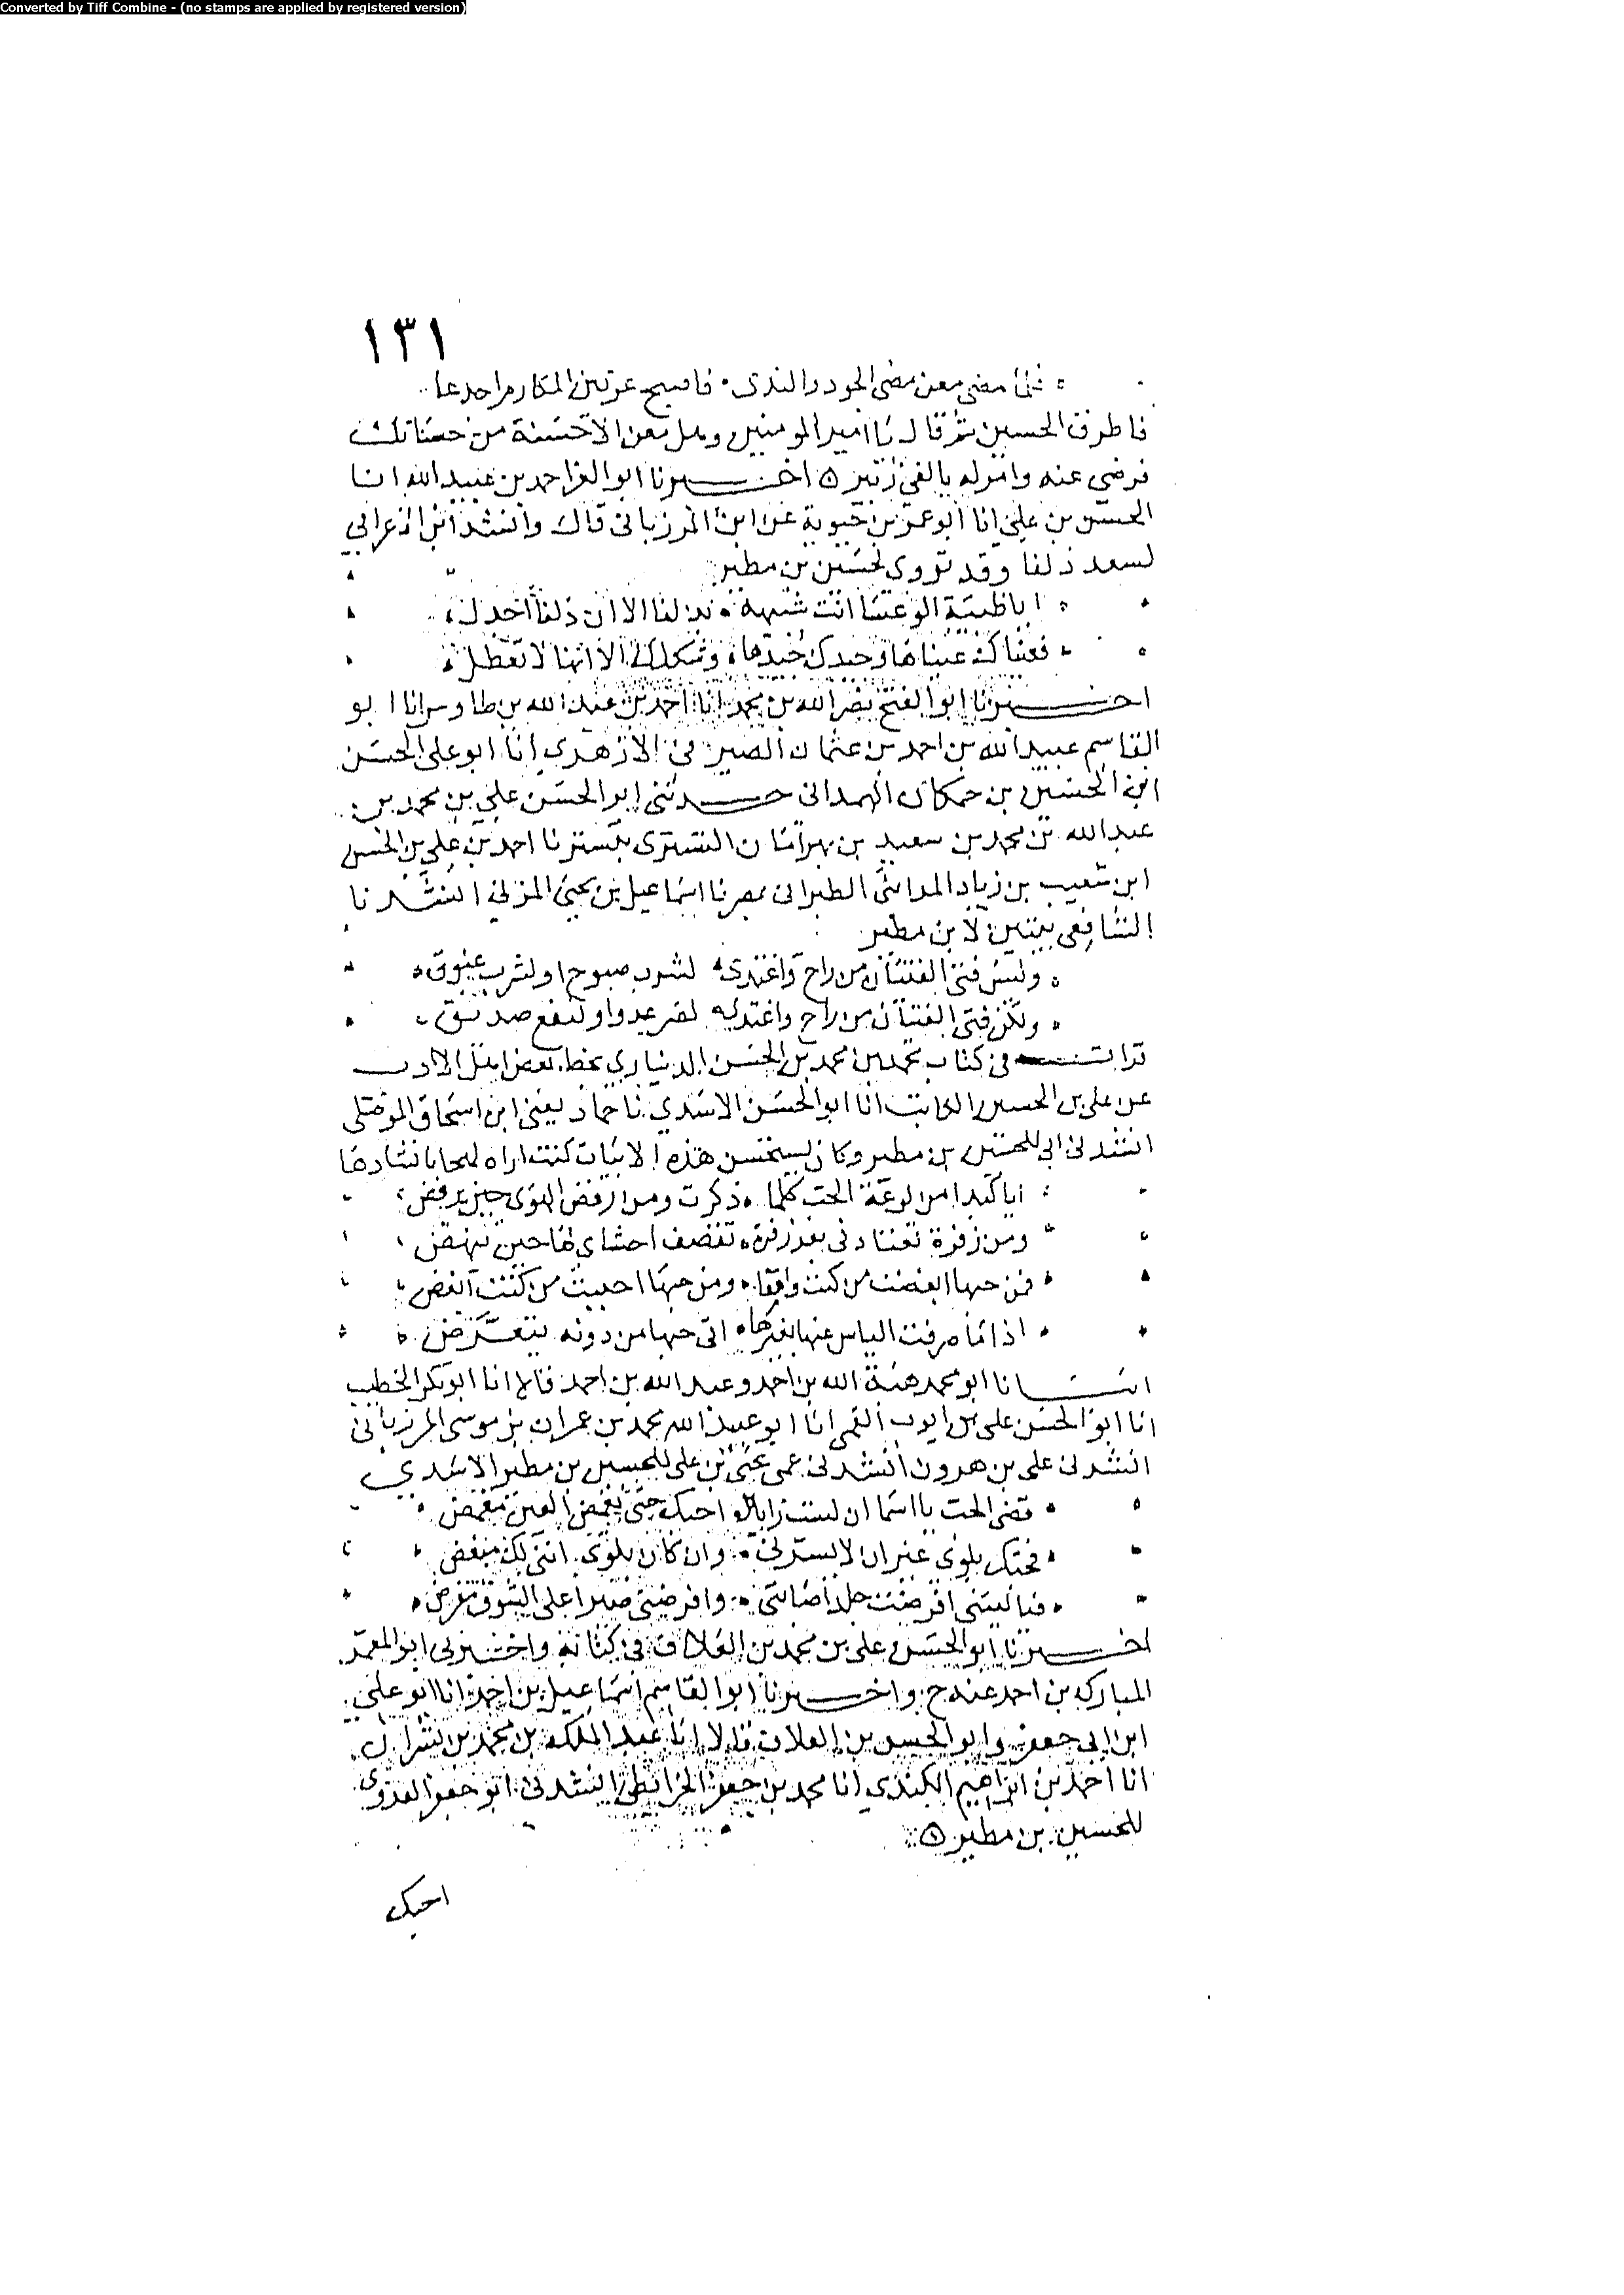 Converted by Tiff Combine - (no stamps are applied by registered version)
١٣١
فلما مضى معن مضى الجود والندى فاصبح عرنين المكارم اجدعا
فاطرق الحسين ثم قال يا امير المومنين وهل معن الا حسنة من حسناتك
فرضي عنه وامر له بالفي دينر اخبرنا ابو العز احمد بن عبيد الله انا
الحسن بن علي انا ابو عمر بن حيوية عن ابن المرزباني قال وانشد ابن الاعرابي
لسعد ذلفا وقد تروى لحسين بن مطير
ايا ظبية الوعسا انت شبيهة بذلفا الا ان ذلفا اخدل
فعيناك عيناها وجيدك جيدها وشكلك الا انها لا تعطل
اخبرنا ابو الفتح نصر الله بن محمد انا احمد بن عبد الله بن طاوس انا ابو
القاسم عبيد الله بن احمد بن عثمان الصيرفي الازهري انا ابو علي الحسن
ابن الحسين بن حمكان الهمداني حدثني ابو الحسن علي بن محمد بن
عبد الله بن محمد بن سعيد بن بهرامان التستري بتستر نا احمد بن علي بن الحسن
ابن شعيب بن زياد المدائني الطبراني بمصر نا اسماعيل بن يحيى المزني انشدنا
الشافعي بيتين لابن مطير
وليس فتى الفتيان من راح واغتدى لشرب صبوح او لشرب غبوق
ولكن فتى الفتيان من راح واغتدى لضر عدو او لنفع صديق
قرات في كتاب محمد بن محمد بن الحسن الديناري بخط بعض اهل الادب
عن علي بن الحسين الكاتب انا ابو الحسن الاسدي نا حماد يعني ابن اسحاق الموصلي
انشدني ابي للحسين بن مطير وكان يستحسن هذه الابيات كنت اراه لهجا بانشادها
ايا كبدا من لوعة الحب كلما ذكرت ومن ارفض الهوى حين يرفض
ومن زفرة تعتادني بعد زفرة تقصف احشاي لها حين تنهض
فمن حبها ابغضت من كنت وامقا ومن حبها احببت من كنت ابغض
اذا ما صرفت الياس عنها بغيرها اتى حبها من دونه يتعرض
انبانا ابو محمد هبة الله بن احمد وعبد الله بن احمد قالا انا ابو بكر الخطيب
انا ابو الحسن علي بن ايوب القمي انا ابو عبيد الله محمد بن عمران بن موسى المرزباني
انشدني علي بن هرون انشدني عمي يحيى بن علي للحسين بن مطير الاسدي
قضى الحب يا اسما ان لست زايلا احبك حتى يغمض العين مغمض
فحبك بلوى غير ان لا يسرني وان كان بلوى انني لك مبغض
فيا ليتني اقرضت جلدا صبابتي واقرضني صبرا على الشوق مقرض
اخبرنا ابو الحسن علي بن محمد بن العلاف في كتابه واخبرني ابو المعمر
المبارك بن احمد عنه ح واخبرنا ابو القاسم اسماعيل بن احمد انا ابو علي
ابن ابي جعفر وابو الحسن بن العلاف قالا انا عبد الملك بن محمد بن بشران
انا احمد بن ابراهيم الكندي انا محمد بن جعفر الخرائطي انشدني ابو جعفر العدوي
للحسين بن مطير
احبك